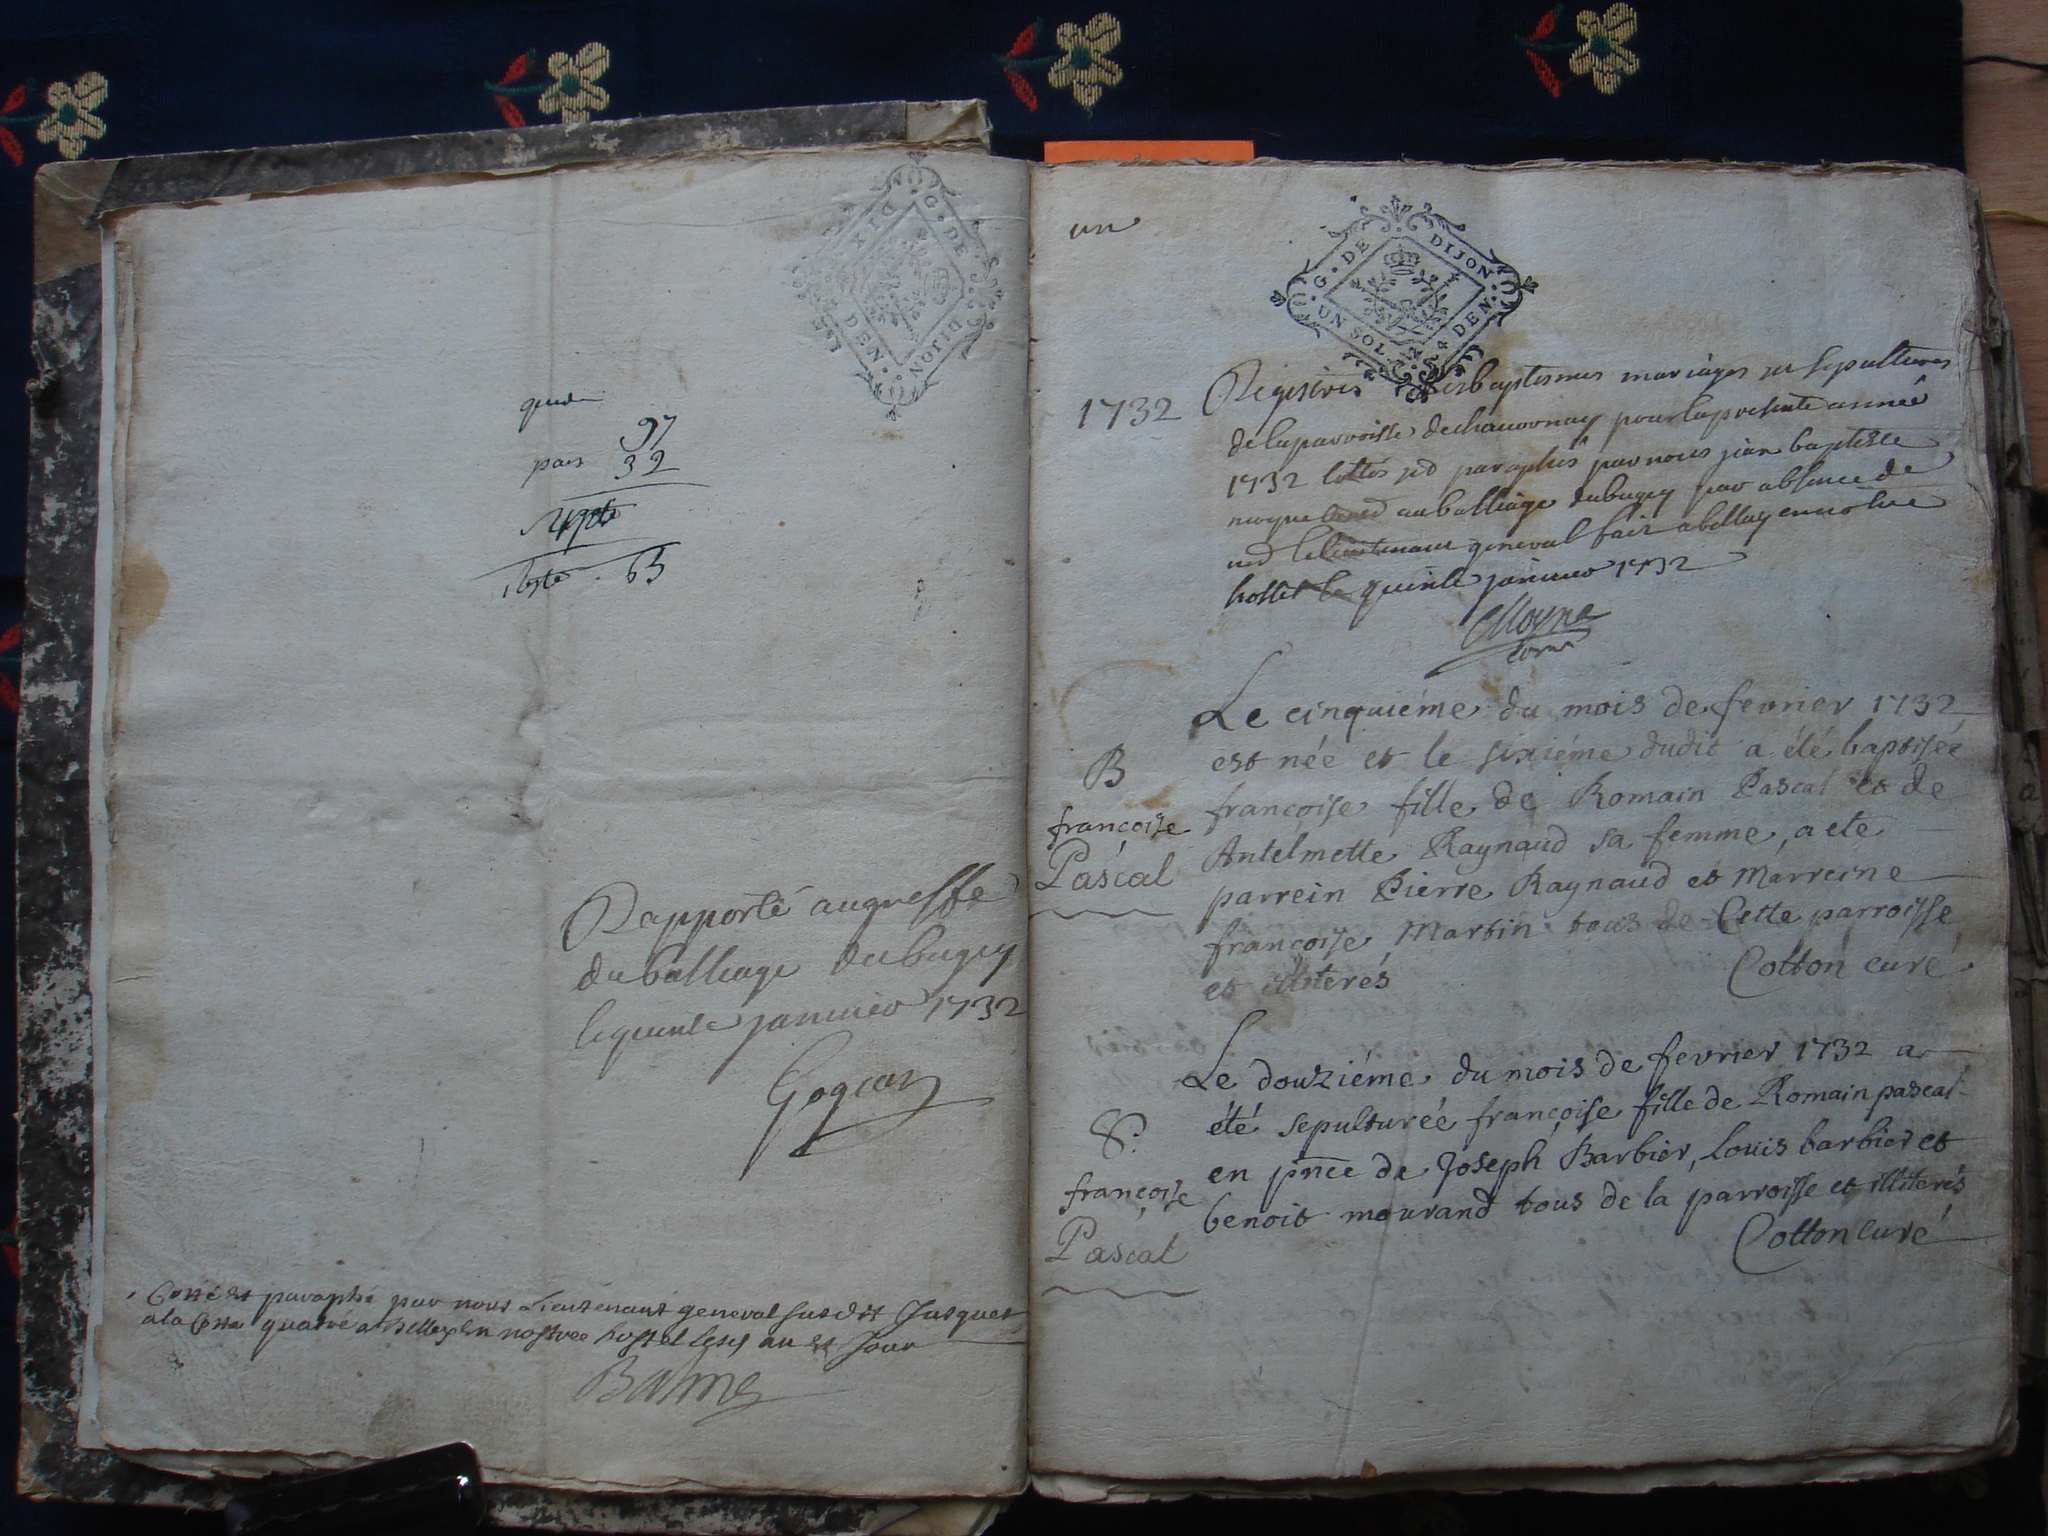 G. DE DIJON
DIX DEN.
97
32
Reste 63
Rapporté au greffe
du balliage du bugey
le quinle janvier 1732
Cotté et paraphé par nous Lieutenant general susdit Jusques
a la Cotte quatre a Belley En nostre hostel les an et Jour
Balme
un
G. DE DIJON
UN SOL. 4 DEN.
1732
Registres des baptesmes mariages et sepultures
de la parroisse de chavornay pour la presente année
1732 cottés et paraphés par nous jean baptiste
au balliage du bugey par absence de
le lieutenant general fait a belley en notre
hostel le quinle janvier 1732
Le cinquiéme du mois de fevrier 1732
est née et le sixiéme dudit a été baptisée
françoise fille de Romain Pascal et de
Antelmette Raynaud sa femme, a ete
parrein Pierre Raynaud et Marreine
françoise Martin tous de Cette parroisse
et illiterés
Cotton curé
B
françoise
Pascal
Le douziéme du mois de fevrier 1732 a
été sepulturée françoise fille de Romain pascal
en pnce de Joseph Barbier, Louis barbier et
benoit mourand tous de la parroisse et illiterés
Cotton curé
S.
françoise
Pascal